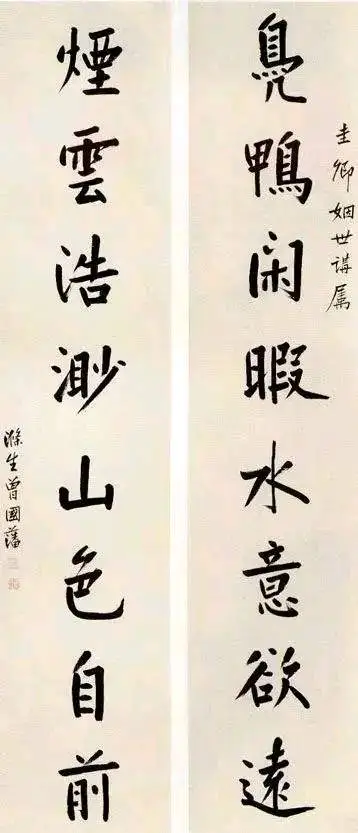 圭卿姻世講属
鳧鴨閑暇水意欲遠
煙雲浩渺山色自前
滌生曾國藩